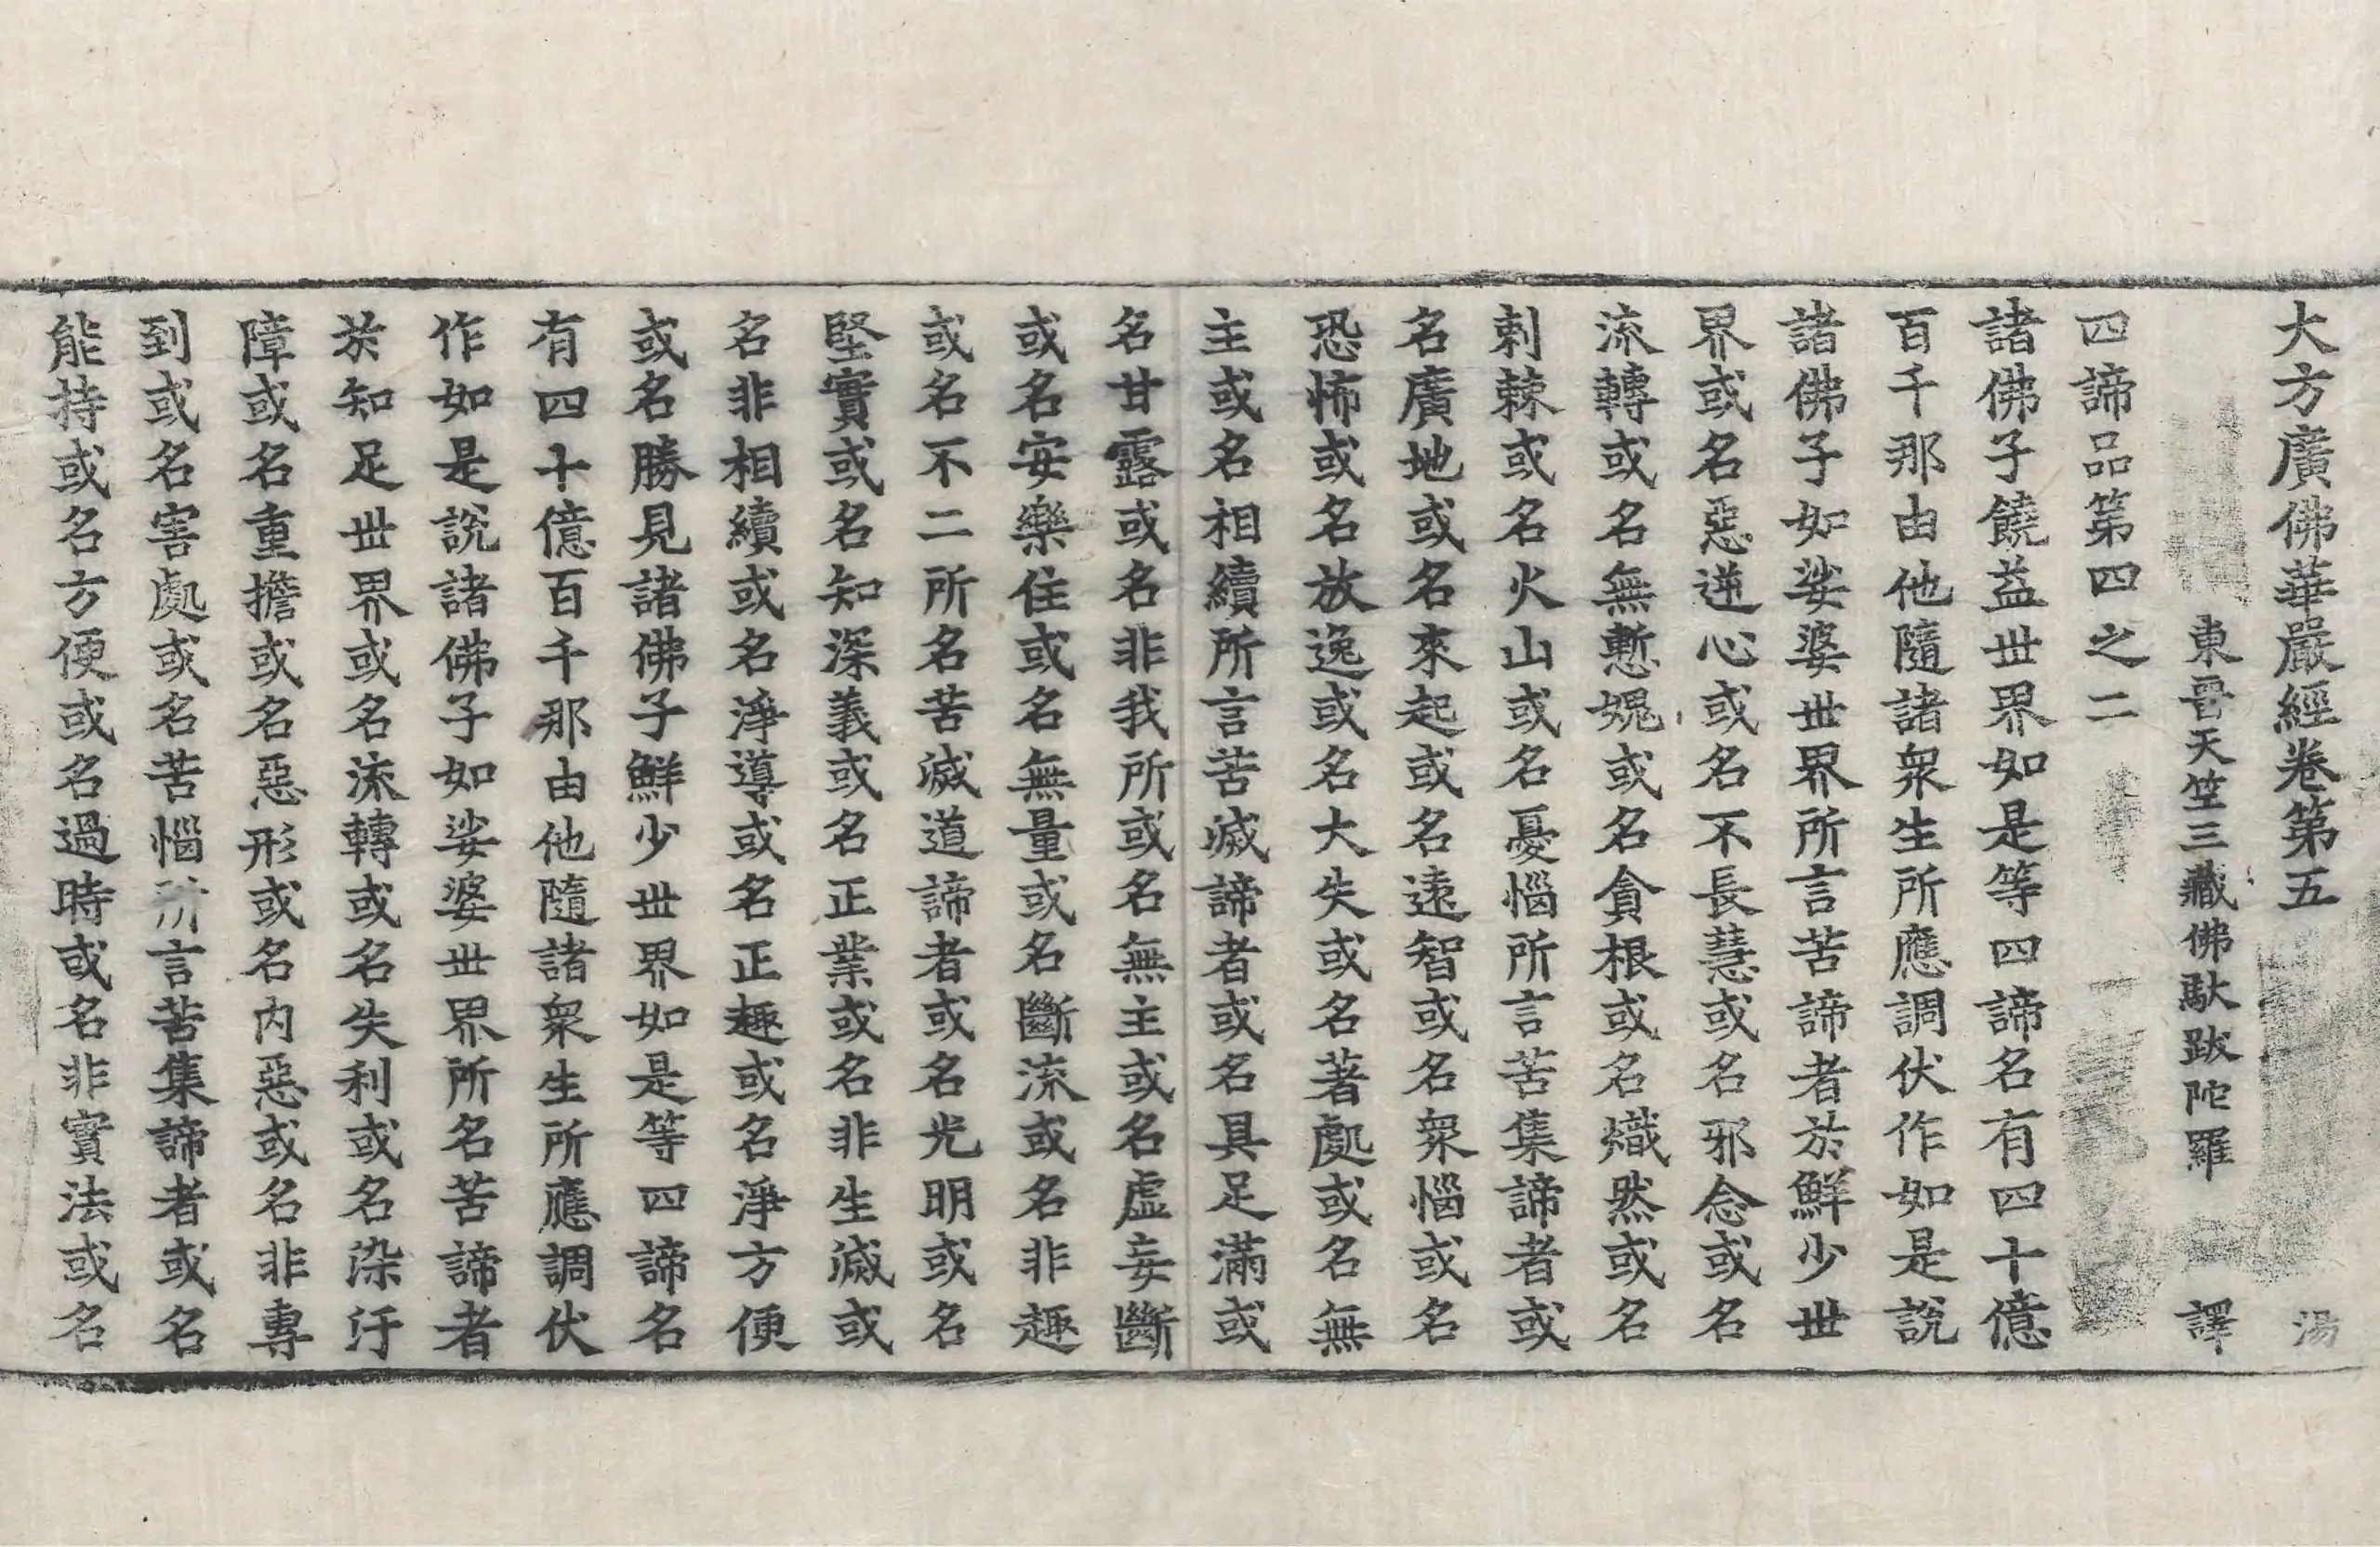 大方廣佛華嚴經卷第五 湯
東晉天竺三藏佛馱跋陀羅 譯
四諦品第四之二
諸佛子饒益世界如是等四諦名有四十億
百千那由他隨諸衆生所應調伏作如是說
諸佛子如娑婆世界所言苦諦者於鮮少世
界或名惡逆心或名不長慧或名邪念或名
流轉或名無慙媿或名貪根或名熾然或名
刺棘或名火山或名憂惱所言苦集諦者或
名廣地或名來起或名遠智或名衆惱或名
恐怖或名放逸或名大失或名著處或名無
主或名相續所言苦滅諦者或名具足滿或
名甘露或名非我所或名無主或名虛妄斷
或名安樂住或名無量或名斷流或名非趣
或名不二所名苦滅道諦者或名光明或名
堅實或名知深義或名正業或名非生滅或
名非相續或名淨導或名正趣或名淨方便
或名勝見諸佛子鮮少世界如是等四諦名
有四十億百千那由他隨諸衆生所應調伏
作如是說諸佛子如娑婆世界所名苦諦者
於知足世界或名流轉或名失利或名染汙
障或名重擔或名惡形或名內惡或名非專
到或名害處或名苦惱所言苦集諦者或名
能持或名方便或名過時或名非實法或名